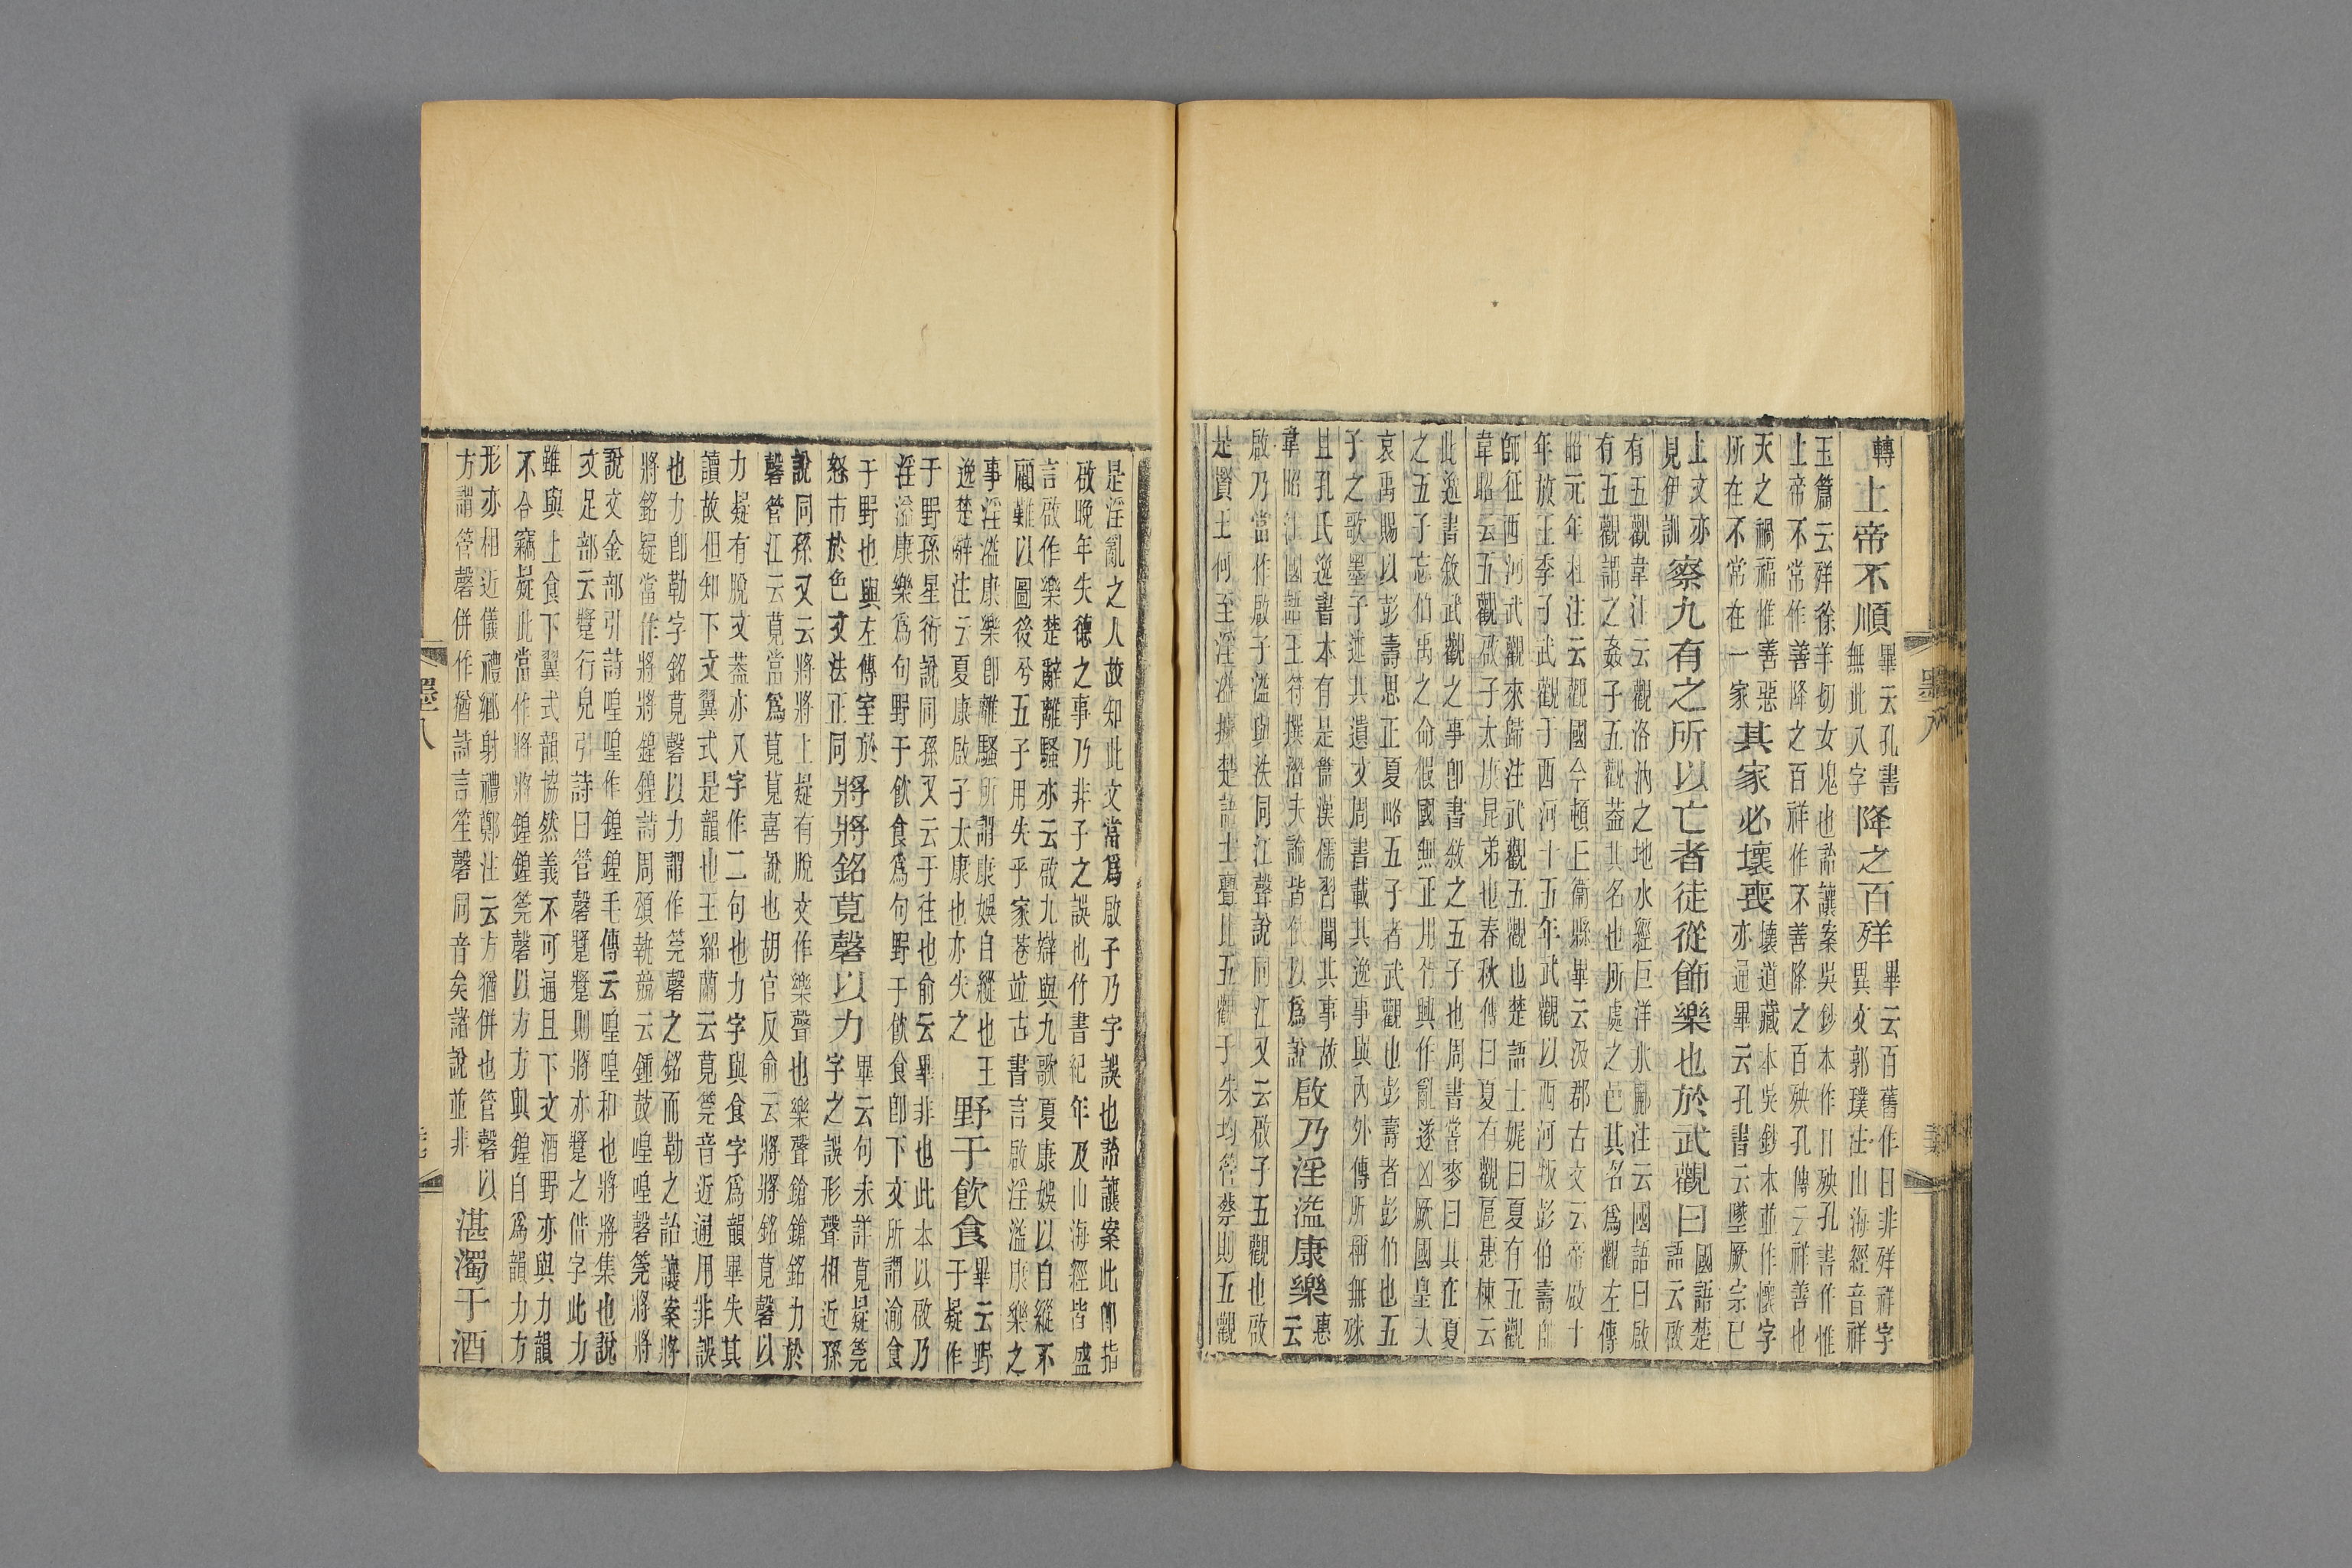 轉上帝不順畢云孔書無此八字降之百𣨛畢云百舊作日非𣨛祥字異文郭璞注山海經音祥
玉篇云𣨛徐羊切女鬼也詒讓案吳鈔本作日殃孔書作惟
上帝不常作善降之百祥作不善降之百殃孔傳云祥善也
天之禍福惟善惡所在不常在一家其家必壞喪壞道藏本吳鈔本並作懷字亦通畢云孔書云墜厥宗已
上文亦見伊訓察九有之所以亡者徒從飾樂也於武觀曰國語楚語云啟
有五觀韋注云觀洛汭之地水經巨洋水酈注云國語曰啟
有五觀謂之姦子五觀蓋其名也所處之邑其名爲觀左傳
昭元年杜注云觀國今頓丘衛縣畢云汲郡古文云帝啟十
年放王季子武觀于西河十五年武觀以西河叛彭伯壽帥
師征西河武觀來歸注武觀五觀也楚語士娓曰夏有五觀
韋昭云五觀啟子太康昆弟也春秋傳曰夏有觀扈惠棟云
此逸書敘武觀之事卽書敘之五子也周書嘗麥曰其在夏
之五子忘伯禹之命假國無正用胥興作亂遂凶厥國皇天
哀禹賜以彭壽思正夏略五子者武觀也彭壽者彭伯也五
子之歌墨子述其遺文周書載其逸事與內外傳所稱無殊
且孔氏逸書本有是篇漢儒習聞其事故韋昭注國語王符撰潛夫論皆依以爲說啟乃淫溢康樂惠云
啟乃當作啟子溢與泆同江聲說同江又云啟子五觀也啟
是賢王何至淫溢據楚語士亹比五觀于朱均管蔡則五觀
墨八
是淫亂之人故知此文當爲啟子乃字誤也詒讓案此卽指
啟晚年失德之事乃非子之誤也竹書紀年及山海經皆盛
言啟作樂楚辭離騷亦云啟九辯與九歌夏康娛以自縱不
顧難以圖後兮五子用失乎家巷並古書言啟淫溢康樂之
事淫溢康樂卽離騷所謂康娛自縱也王逸楚辭注云夏康啟子太康也亦失之野于飲食畢云野于疑作
于野孫星衍說同孫又云于往也俞云畢非也此本以啟乃
淫溢康樂爲句野于飲食爲句野于飲食卽下文所謂渝食
于野也與左傳室於怒市於色文法正同將將銘莧磬以力畢云句未詳莧疑筦字之誤形聲相近孫
說同孫又云將將上疑有脫文作樂聲也樂聲鎗鎗銘力於
磬管江云莧當爲莧莧喜說也胡官反俞云將將銘莧磬以
力疑有脫文蓋亦八字作二句也力字與食字爲韻畢失其
讀故但知下文翼式是韻也王紹蘭云莧筦音近通用非誤
也力卽勒字銘莧磬以力謂作筦磬之銘而勒之詒讓案將
將銘疑當作將將鍠鍠詩周頌執競云鍾鼓喤喤磬筦將將
說文金部引詩喤喤作鍠鍠毛傳云喤喤和也將將集也說
文足部云蹩行皃引詩曰管磬蹩蹩則將亦蹩之借字此力
雖與上食下翼式韻協然義不可通且下文酒野亦與力韻
不合竊疑此當作將將鍠鍠筦磬以方方與鍠自爲韻力方
形亦相近儀禮鄉射禮鄭注云方猶併也管磬以
方謂管磬併作猶詩言笙磬同音矣諸說並非湛濁于酒
墨八